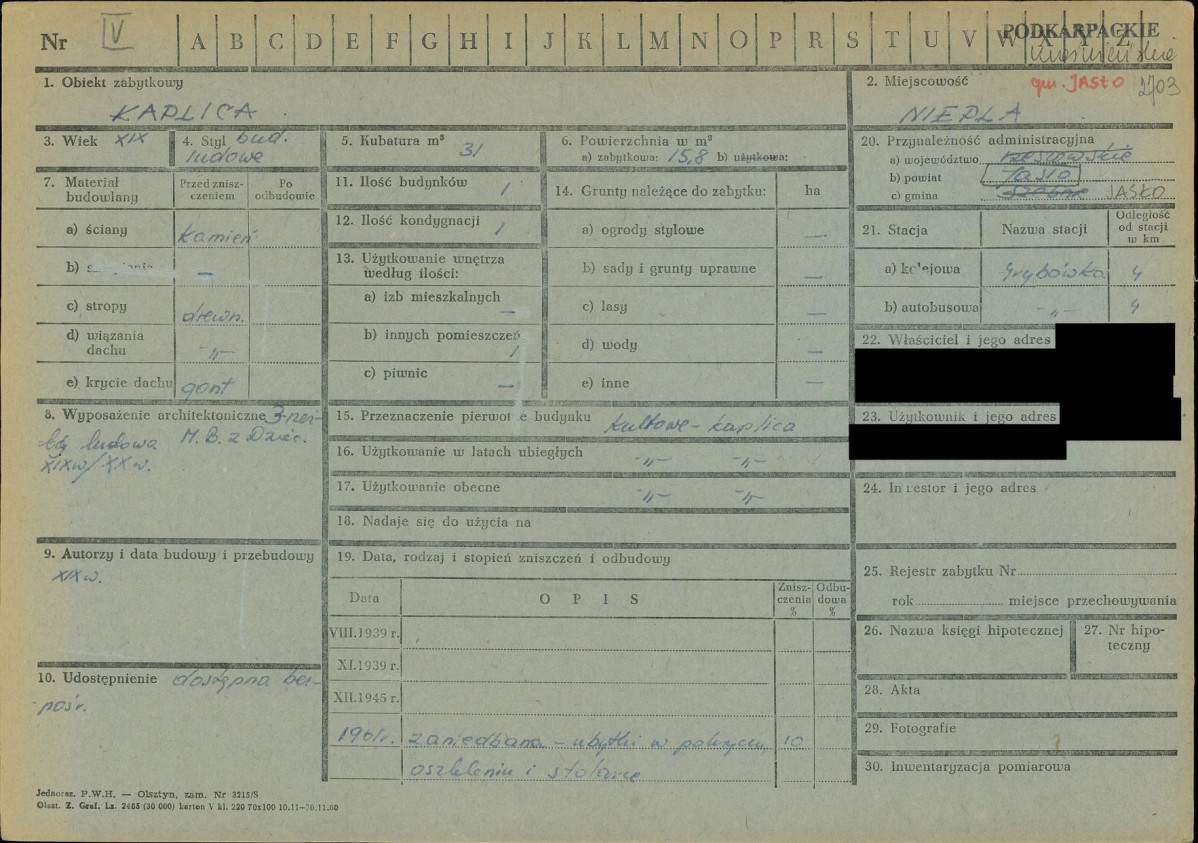 Nr V A B C D E F G H I J K L M N O P R S T U V W X Y Z
PODKARPACKIE
1. Obiekt zabytkowy
KAPLICA
2. Miejscowość
gm. JASŁO 2703
NIEPLA
3. Wiek XIX
4. Styl bud.
ludowe
5. Kubatura m³ 31
6. Powierzchnia w m²
a) zabytkowa: 15,8 b) użytkowa:
20. Przynależność administracyjna
a) województwo rzeszowskie
b) powiat Jasło
c) gmina Szebnie JASŁO
7. Materiał budowlany
Przed znisz-
czeniem
Po
odbudowie
a) ściany kamień
b) –
c) stropy drewn.
d) wiązania
dachu -"-
e) krycie dachu gont
11. Ilość budynków 1
12. Ilość kondygnacji 1
13. Użytkowanie wnętrza
według ilości:
a) izb mieszkalnych –
b) innych pomieszczeń 1
c) piwnic –
14. Grunty należące do zabytku: ha
a) ogrody stylowe –
b) sady i grunty uprawne –
c) lasy –
d) wody –
e) inne –
21. Stacja Nazwa stacji
Odległość
od stacji
w km
a) kolejowa Grybówka 4
b) autobusowa -"- 4
22. Właściciel i jego adres
23. Użytkownik i jego adres
8. Wyposażenie architektoniczne 3-rzeź-
by ludowa M.B. z Dziec.
XIXw/XXw.
15. Przeznaczenie pierwot e budynku kultowe - kaplica
16. Użytkowanie w latach ubiegłych -"- -"-
17. Użytkowanie obecne -"- -"-
18. Nadaje się do użycia na
24. Inwestor i jego adres
9. Autorzy i data budowy i przebudowy
XIXw.
19. Data, rodzaj i stopień zniszczeń i odbudowy
Data O P I S
Znisz-
czenia
%
Odbu-
dowa
%
VIII.1939 r.
XI.1939 r.
XII.1945 r.
1961r. zaniedbana - ubytki w pokryciu, 10
oszkleniu i stolarce
25. Rejestr zabytku Nr
rok miejsce przechowywania
26. Nazwa księgi hipotecznej
27. Nr hipo-
teczny
10. Udostępnienie dostępna bez-
pośr.
28. Akta
29. Fotografie
30. Inwentaryzacja pomiarowa
Jednoraz. P.W.H. — Olsztyn, zam. Nr 3215/S
Olszt. Z. Graf. Lz. 2465 (30 000) karton V kl. 220 70x100 10.11—30.11.60